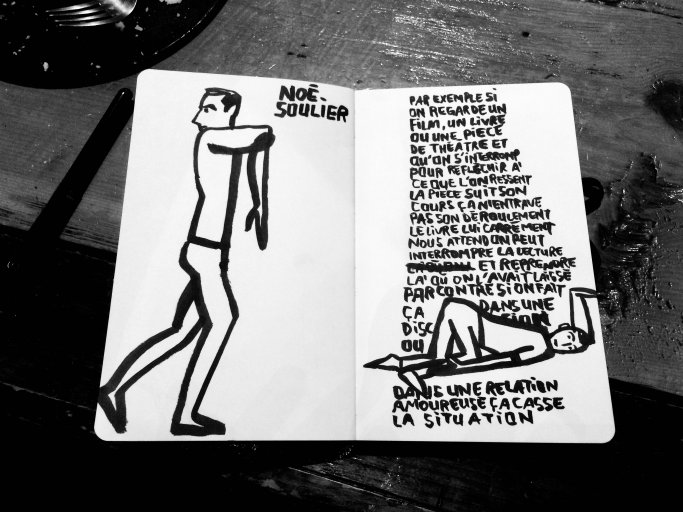 NOÉ.
SOULIER
PAR EXEMPLE SI
ON REGARDE UN
FILM, UN LIVRE
OU UNE PIECE
DE THÉATRE ET
QU'ON S'INTERROMP
POUR REFLECHIR A'
CE QUE L'ON RESSENT
LA PIECE SUIT SON
COURS ÇA N'ENTRAVE
PAS SON DEROULEMENT
LE LIVRE LUI CARREMENT
NOUS ATTEND ON PEUT
INTERROMPRE LA LECTURE
ET REPRENDRE
LA' OÙ ON L'AVAIT LAISSÉ
PAR CONTRE SI ON FAIT
ÇA DANS UNE
DISC SION
OU
DANS UNE RELATION
AMOUREUSE ÇA CASSE
LA SITUATION